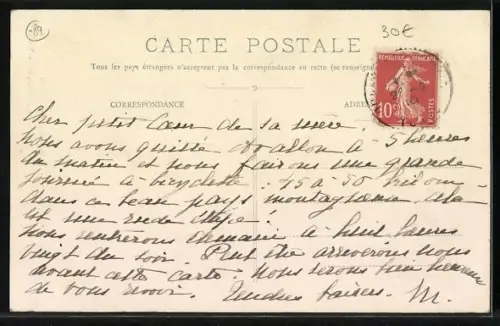 -89
30€
CARTE POSTALE
Tous les pays étrangers n'acceptent pas la correspondance au recto (se renseigner
CORRESPONDANCE
ADRES
REPUBLIQUE FRANÇAISE
10c
POSTES
Cher petit Cœur de sa mère.
Nous avons quitté Avallon à 5 heures
du matin et nous faisons une grande
journée à bicyclette. 45 à 50 kilom-
dans ce beau pays montagneux
est une rude étape!
Nous rentrerons demain à huit heures
vingt du soir. Peut être arriverons nous
avant cette carte. Nous serons bien heureux
de vous revoir. Tendres baisers. M.